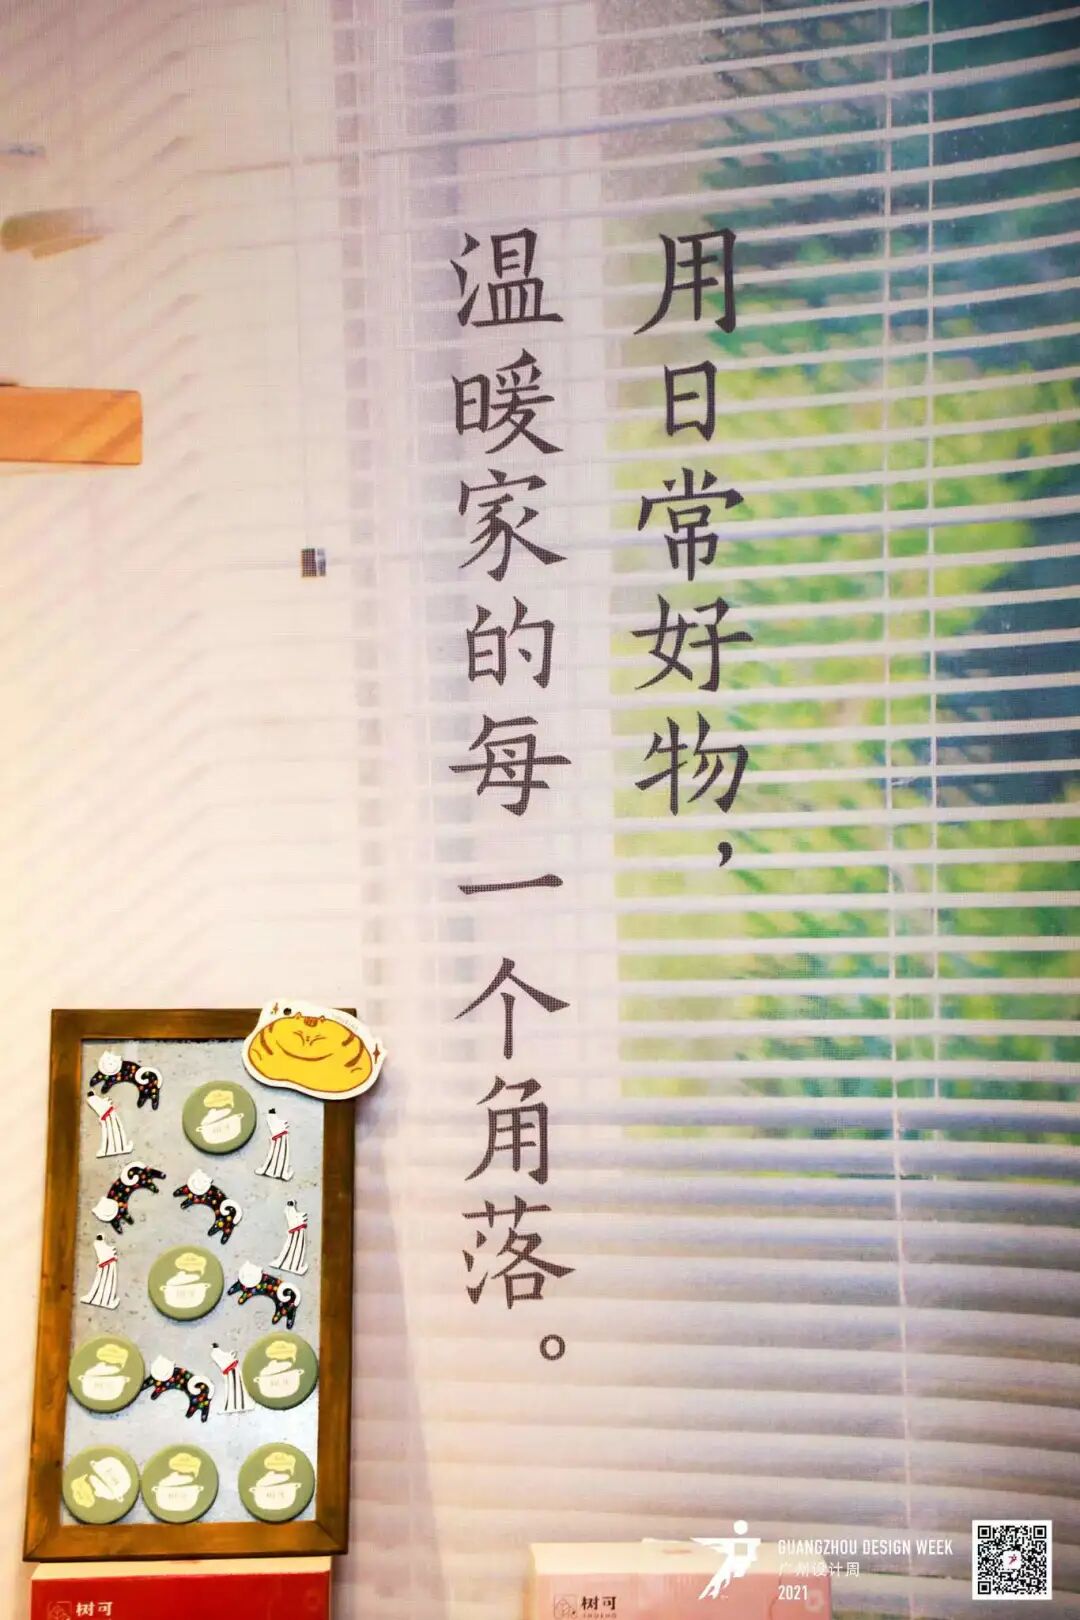 用日常好物，
温暖家的每一个角落。
树可
树可
GUANGZHOU DESIGN WEEK
广州设计周
2021